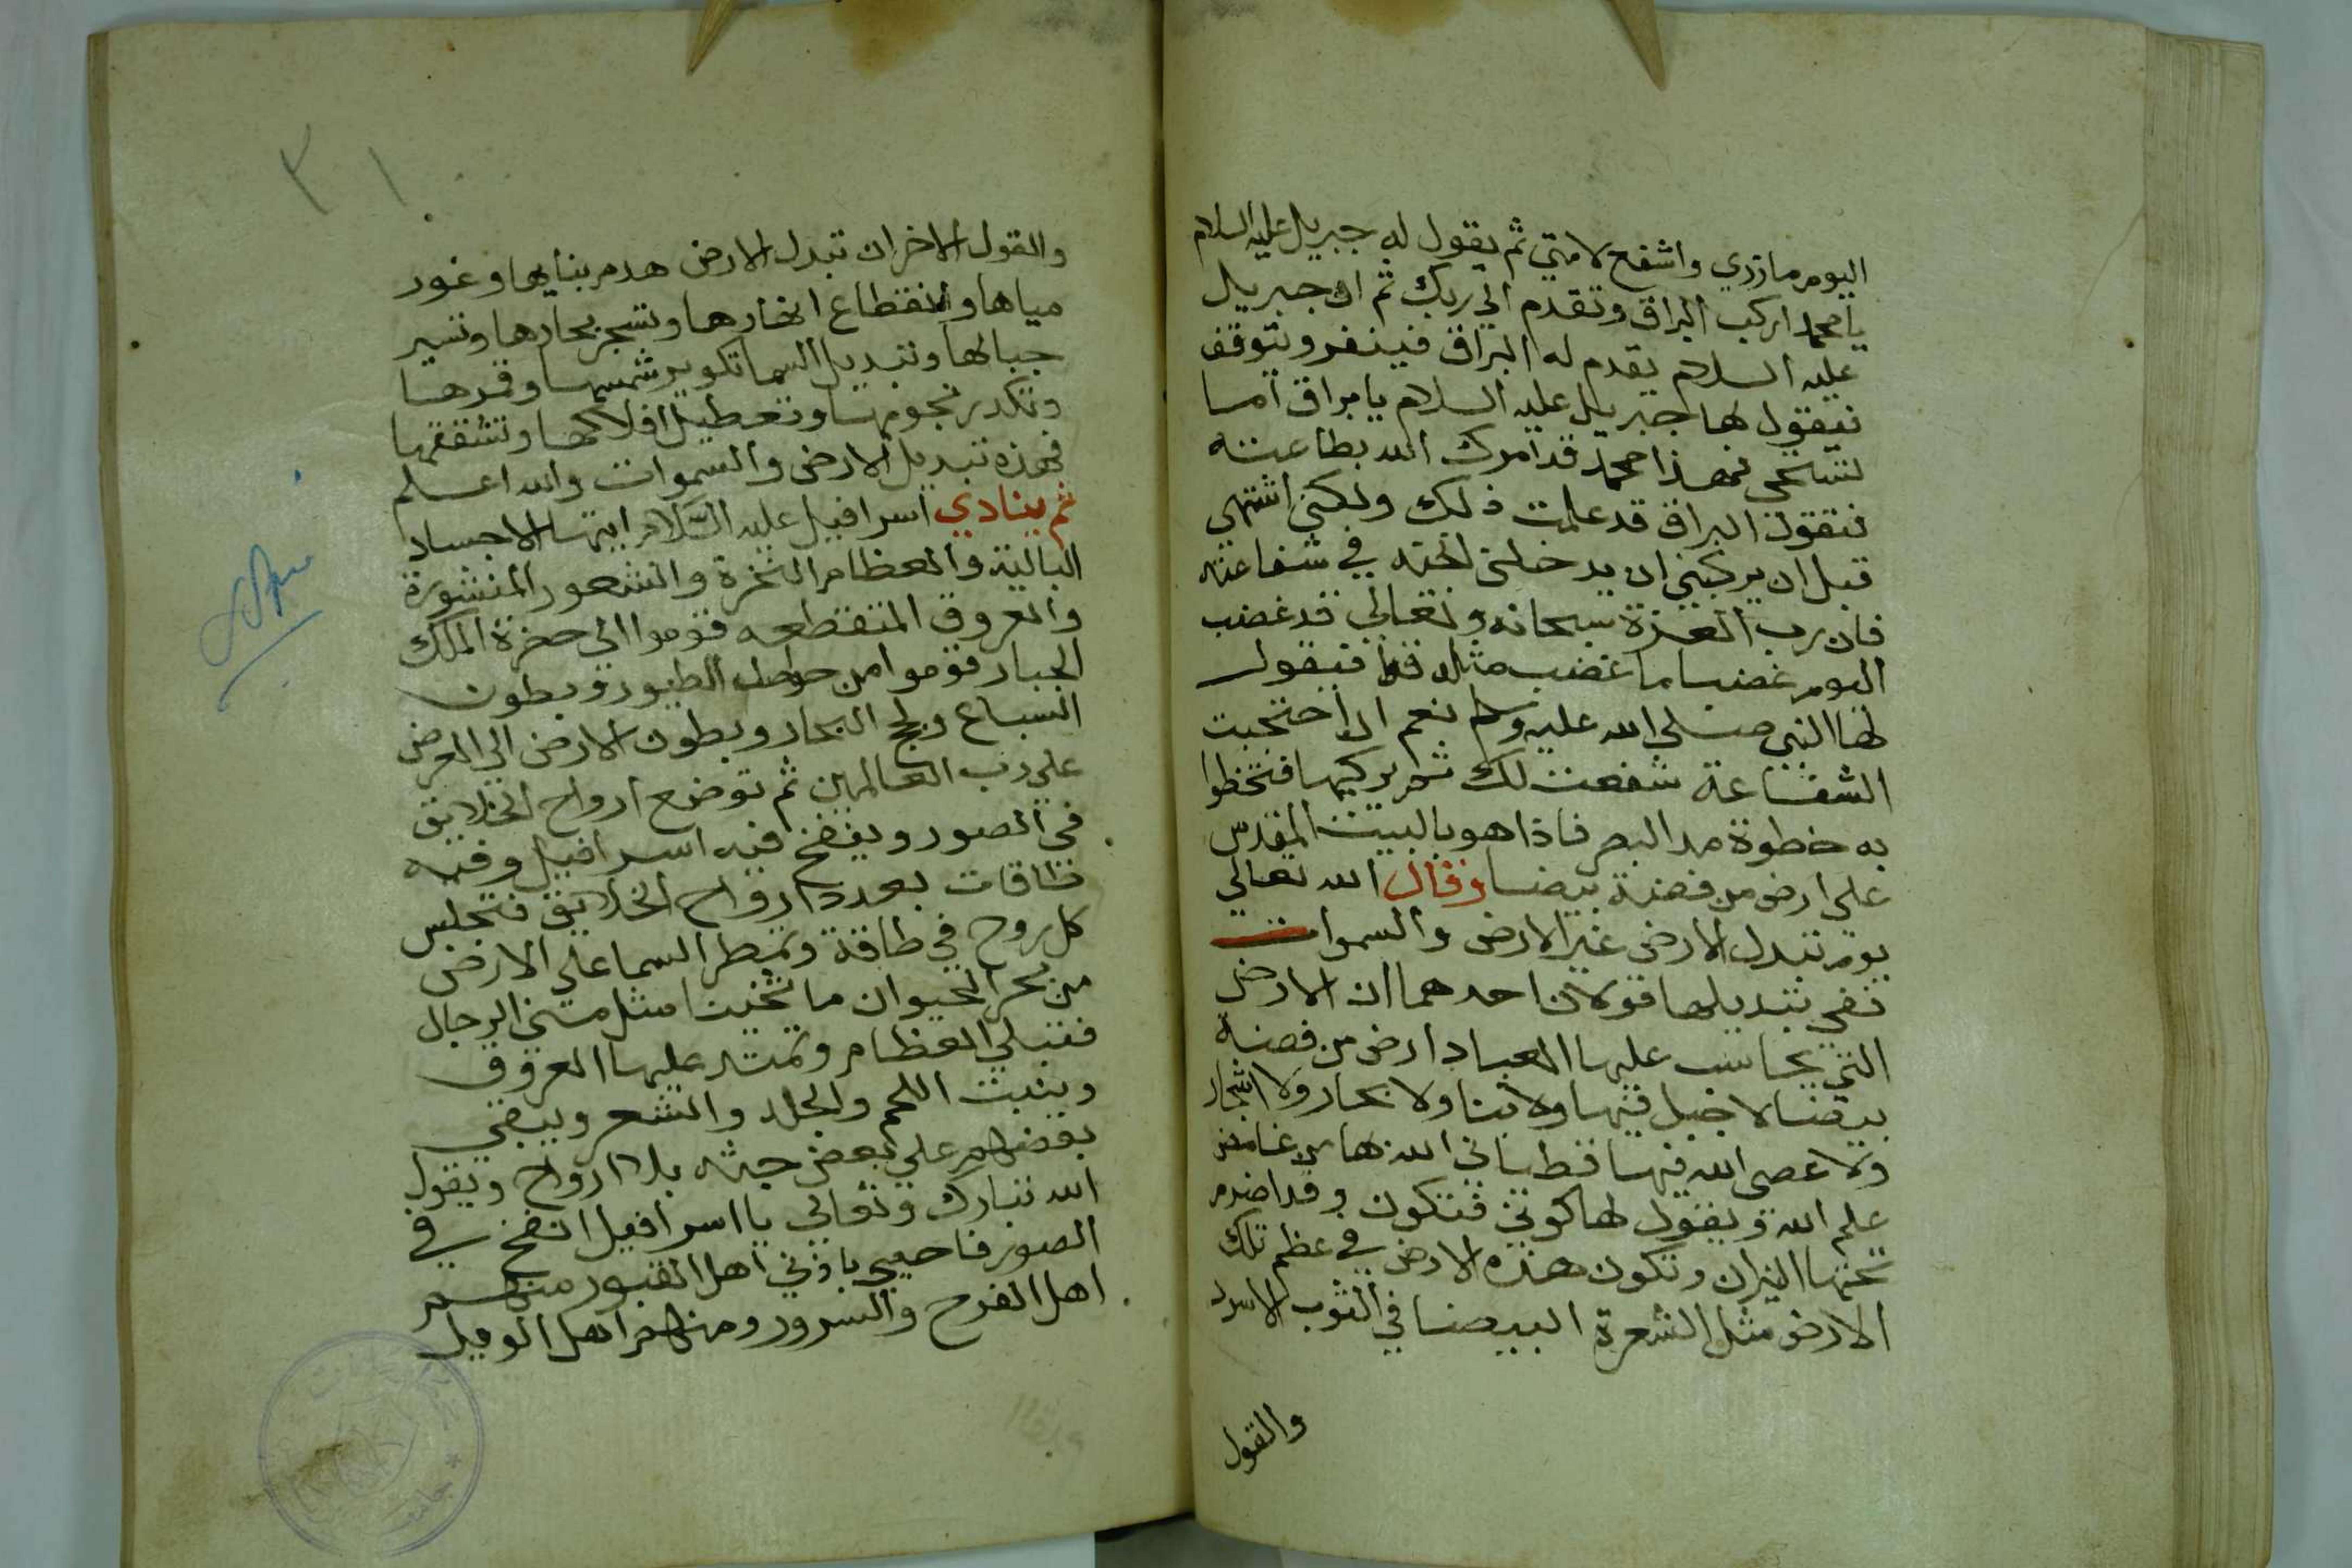 اليوم مازري واشفع لامتي ثم يقول له جبريل عليه السلام
يا محمد اركب البراق وتقدم الي ربك ثم ان جبريل
عليه السلام يقدم له البراق فينفر ويتوقف
فيقول لها جبريل عليه السلام يا براق اما
تستحي فهذا محمد قد امرك الله بطاعته
فتقول البراق قد علمت ذلك ولكني اشتهي
قبل ان يركبني ان يدخلني الجنه في شفاعته
فان رب العزة سبحانه وتعالي قد غضب
اليوم غضبا ما غضب مثله قط فيقول
لها النبي صلي الله عليه وسلم نعم ان احتجبت
الشفاعة شفعت لك ثم يركبها فتخطوا
به خطوة مد البصر فاذا هو بالبيت المقدس
علي ارض من فضة بيضا وقال الله تعالي
يوم تبدل الارض غير الارض والسموات
ففي تبديلها قولان احدهما ان الارض
التي يحاسب عليها العباد ارض من فضة
بيضا لا جبل فيها ولا بنا ولا بحار ولا اشجار
ولا عصي الله فيها قط ياتي الله بها من غامض
علم الله ويقول لها كوني فتكون وقد اضرم
تحتها النيران وتكون هذه الارض في عظم تلك
الارض مثل الشعرة البيضا في الثوب الاسود
والقول
٣١
والقول الاخر ان تبدل الارض هدم بنايها وغور
مياها وانقطاع انهارها وتسجر بحارها وتسير
جبالها وتبديل السما تكوير شمسها وقمرها
وتكدر نجومها وتعطيل افلاكها وتشققها
فهذه تبديل الارض والسموات والله اعلم
ثم ينادي اسرافيل عليه السلام ايتها الاجساد
البالية والعظام النخرة والشعور المنشورة
والعروق المتقطعه قوموا الي حضرة الملك
الجبار قوموا من حواصل الطيور وبطون
السباع ولجج البحار وبطون الارض الي العرض
علي رب العالمين ثم توضع ارواح الخلايق
في الصور وينفخ فيه اسرافيل وفيه
طاقات بعدد ارواح الخلايق فتجلس
كل روح في طاقة وتمطر السما علي الارض
من بحر الحيوان ما ثخينا مثل مني الرجال
فتبلي العظام وتمتد عليها العروق
وينبت اللحم والجلد والشعر ويبقي
بعضهم علي بعض جثه بلا ارواح ويقول
الله تبارك وتعالي يا اسرافيل انفخ في
الصور فاحيي باذني اهل القبور منهم
اهل الفرح والسرور ومنهم اهل الويل